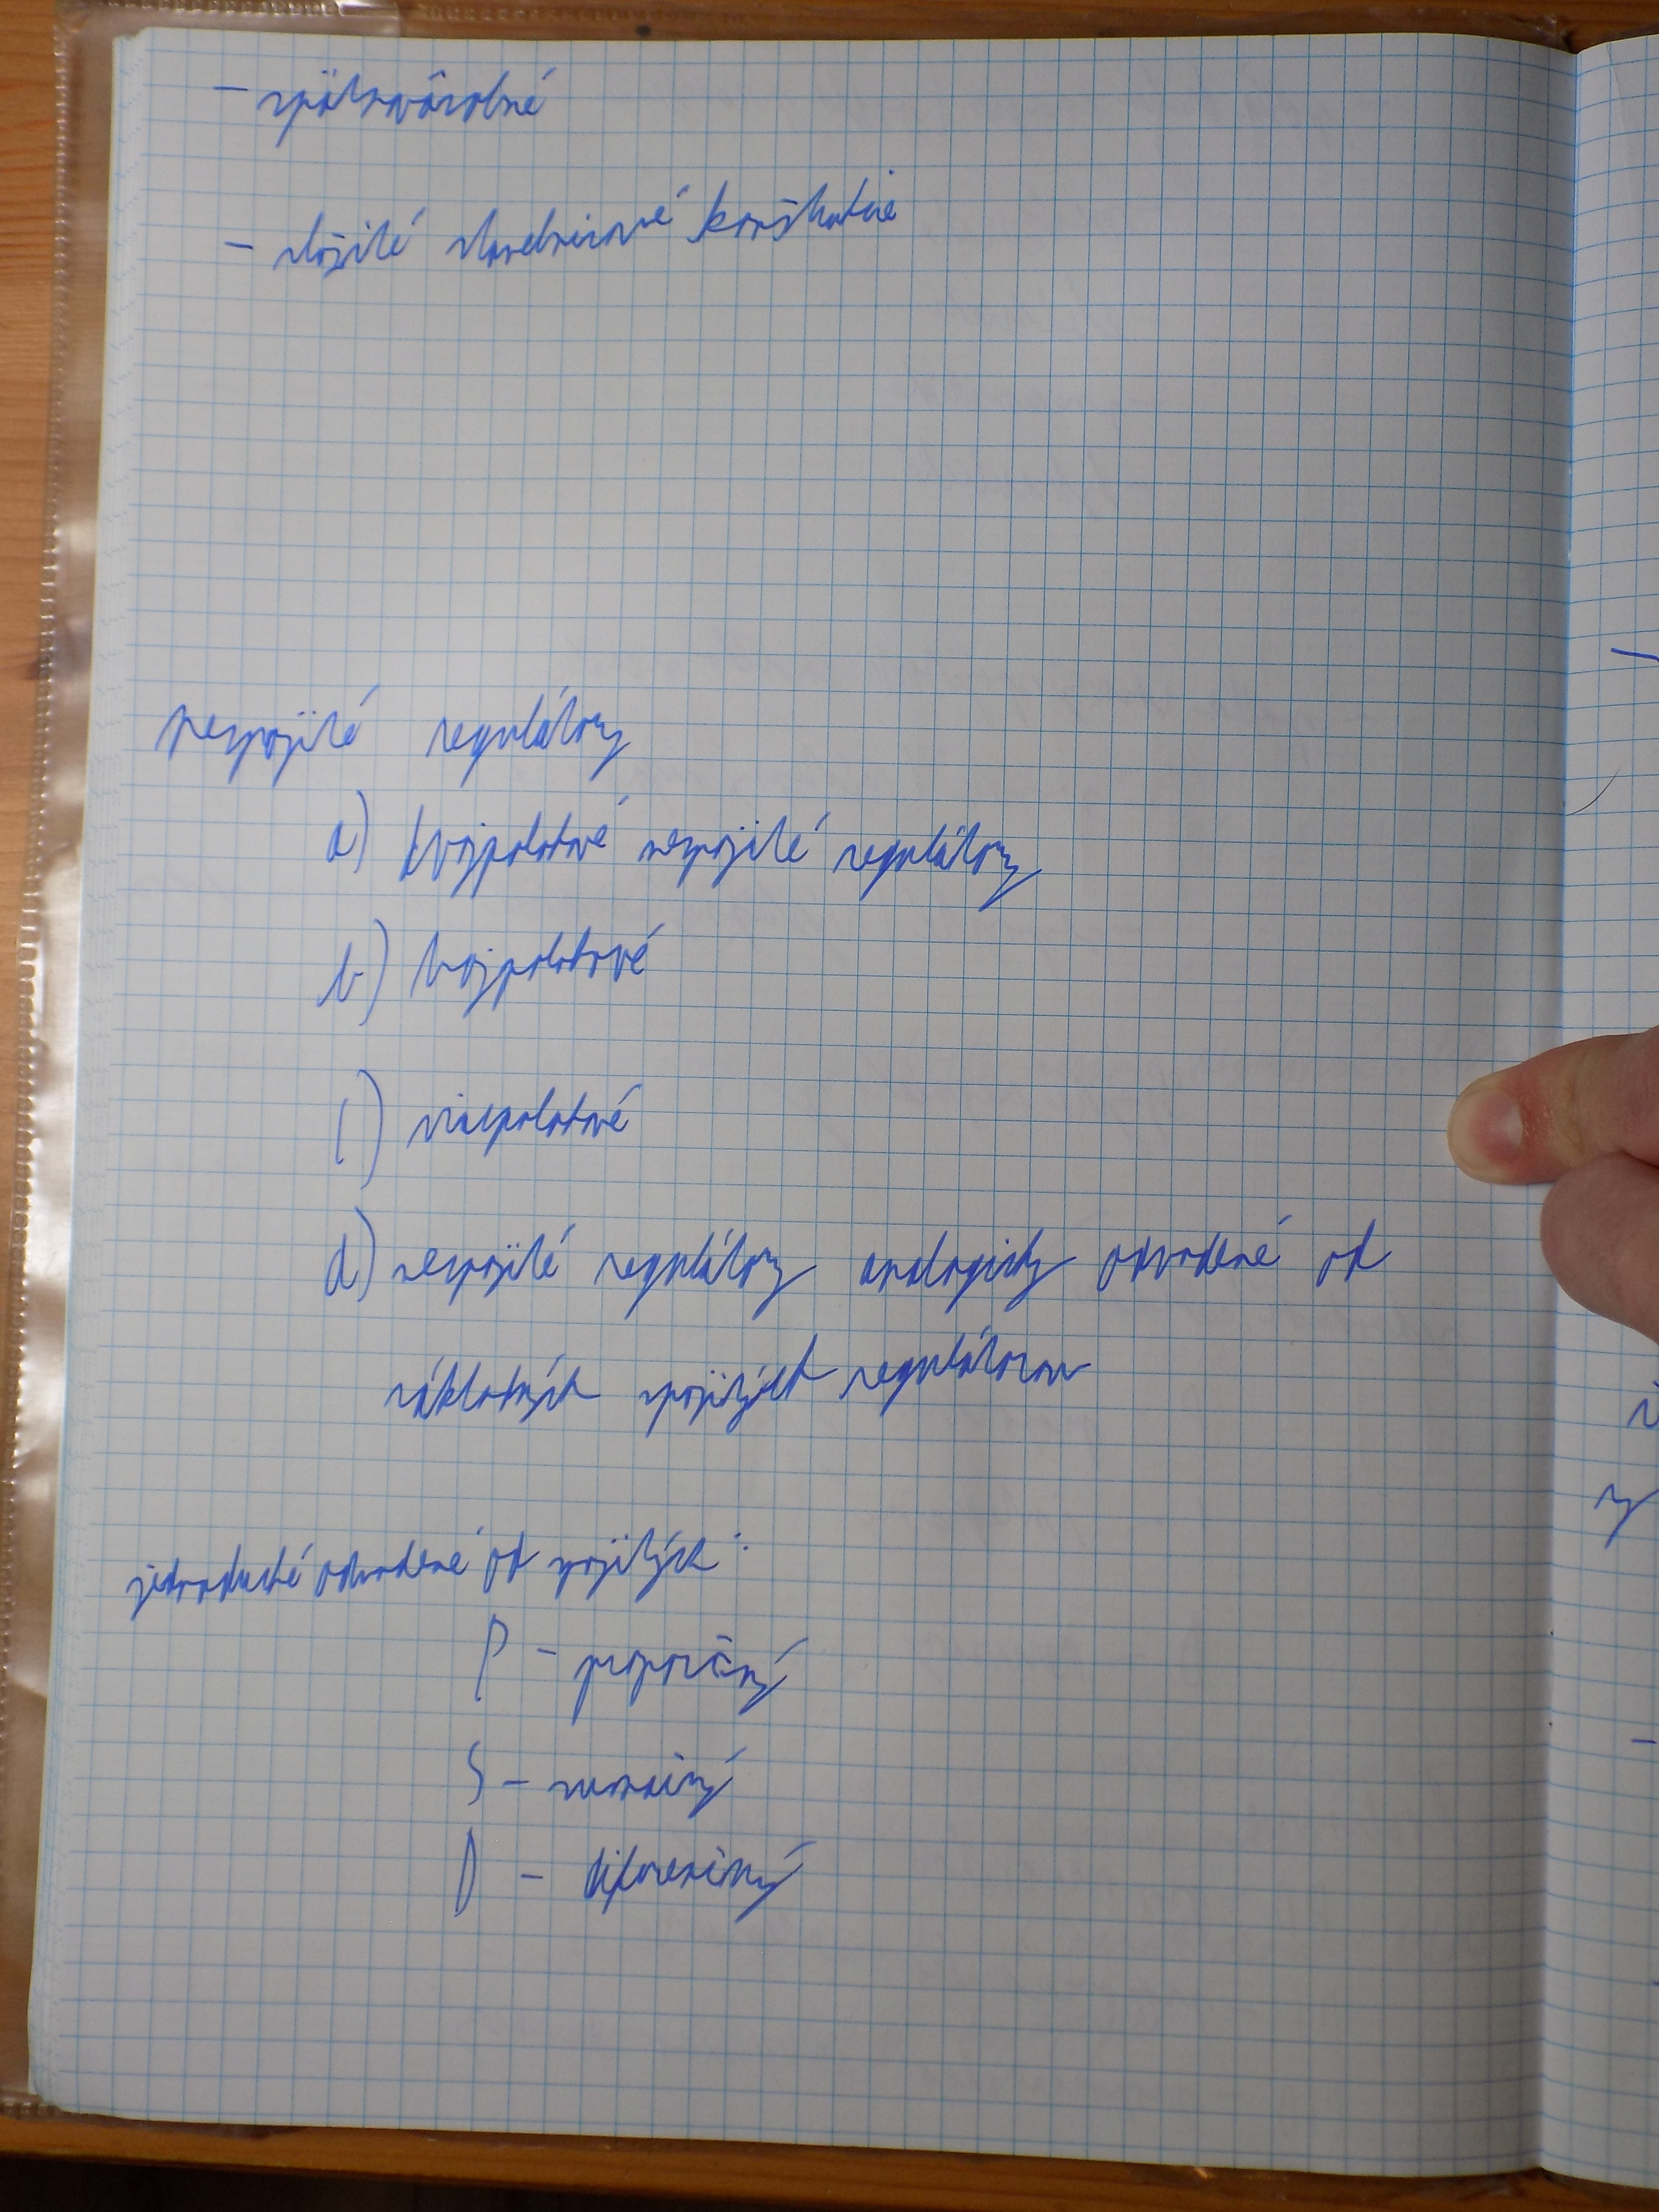 - spätnoväzobné
- zložité stavebnicové
nespojité regulátory
a) dvojpolohové nespojité regulátory
b) trojpolohové
c) viacpolohové
d) nespojité regulátory analogicky odvodené od
základných spojitých regulátorov
jednoduché odvodené od spojitých:
P - proporčný
S - sumačný
D - diferenčný